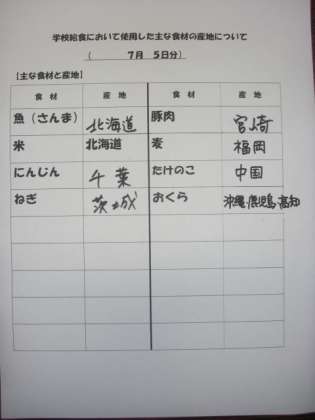 学校給食において使用した主な食材の産地について
（ 7月 5日分）
【主な食材と産地】
食 材 産 地 食 材 産 地
魚（さんま） 北海道 豚肉 宮崎
米 北海道 麦 福岡
にんじん 千葉 たけのこ 中国
ねぎ 茨城 おくら 沖縄,鹿児島,高知